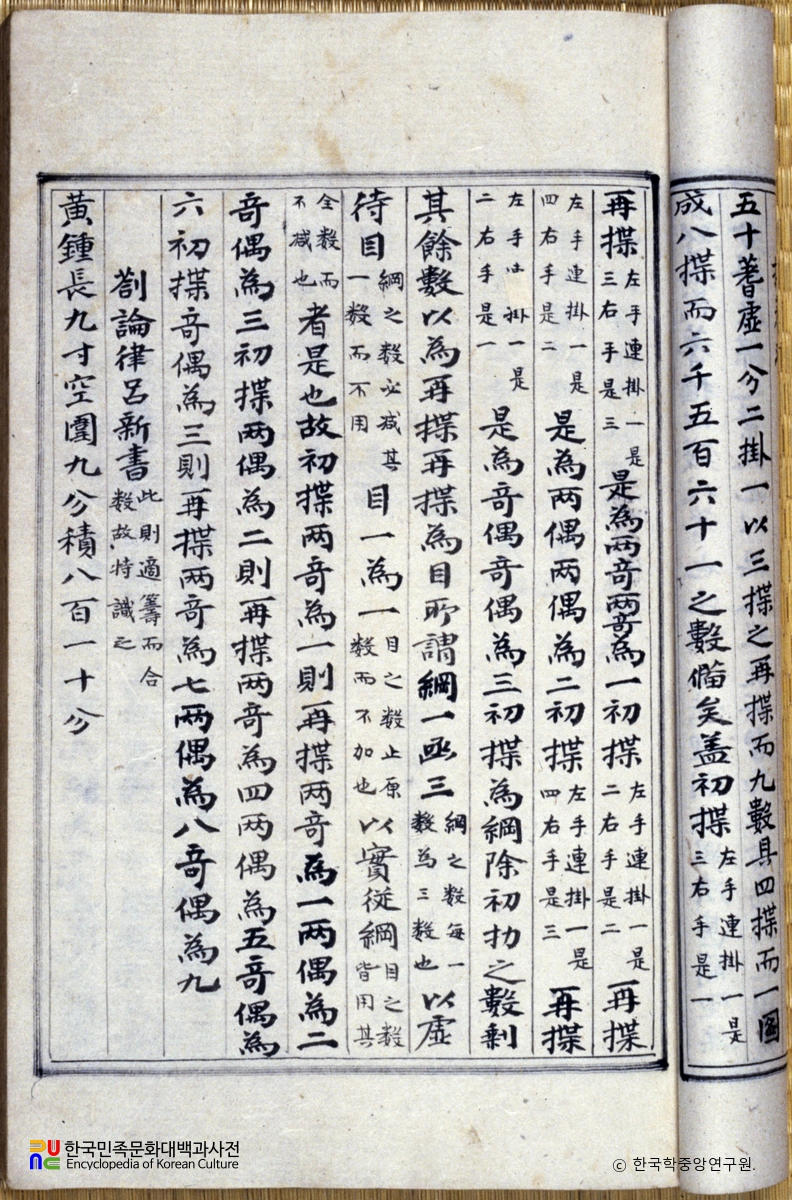 五十蓍虛一分二掛一以三揲之再揲而九數具四揲而一圖
成八揲而六千五百六十一之數備矣盖初揲左手連掛一是三右手是一
再揲左手連掛一是三右手是三是為两奇两奇為一初揲左手連掛一是二右手是二再揲
左手連掛一是四右手是二是為两偶两偶為二初揲左手連掛一是四右手是三再揲
左手掛一是二右手是一是為奇偶奇偶為三初揲為綱除初扐之數剩
其餘數以為再揲再揲為目所謂綱一函三綱之數每一數為三數也以虛
待目綱之數必减其一數而不用目一為一目之數止原數而不加也以實從綱目之數皆用其
全數而不减也者是也故初揲两奇為一則再揲两奇為一两偶為二
奇偶為三初揲两偶為二則再揲两奇為四两偶為五奇偶為
六初揲奇偶為三則再揲两奇為七两偶為八奇偶為九
劄論律呂新書此則適籌而合數故特識之
黃鍾長九寸空圍九分積八百一十分
한국민족문화대백과사전
Encyclopedia of Korean Culture
© 한국학중앙연구원.